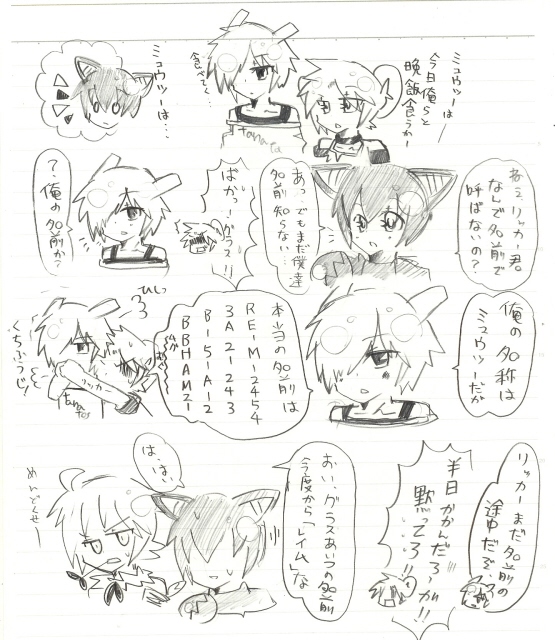 ミュウツーは
今日俺らと
晩飯食うかー
食べてく…
ミュウツーは…
tanata
ねぇリッカー君
なんで名前で
呼ばないの?
あっ、でもまだ僕達
名前知らない…
ばかっ!グラス!!
?俺の名前か?
俺の名称は
ミュウツーだが
本当の名前は
RE-M-2454
3A2-1-243
B-5-A-2
BBHAM21-
ひしっ
くちふうじ!
リッカー
tanatos
リッカーまだ名前の
途中だぞ
半日かかんだろーが!!
黙ってろ!!
おい、グラスあいつの名前
今度から「レイム」な
は、はい
めんどくせー